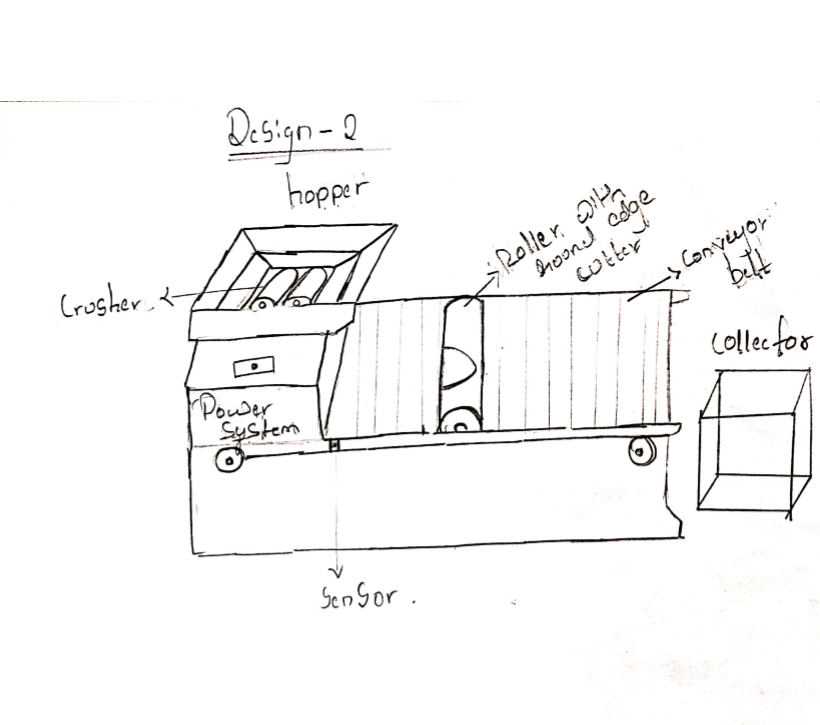 Design-2
hopper
Roller with
round edge
cutter
Conveyor
belt
Crusher
Collector
Power
System
Sensor.